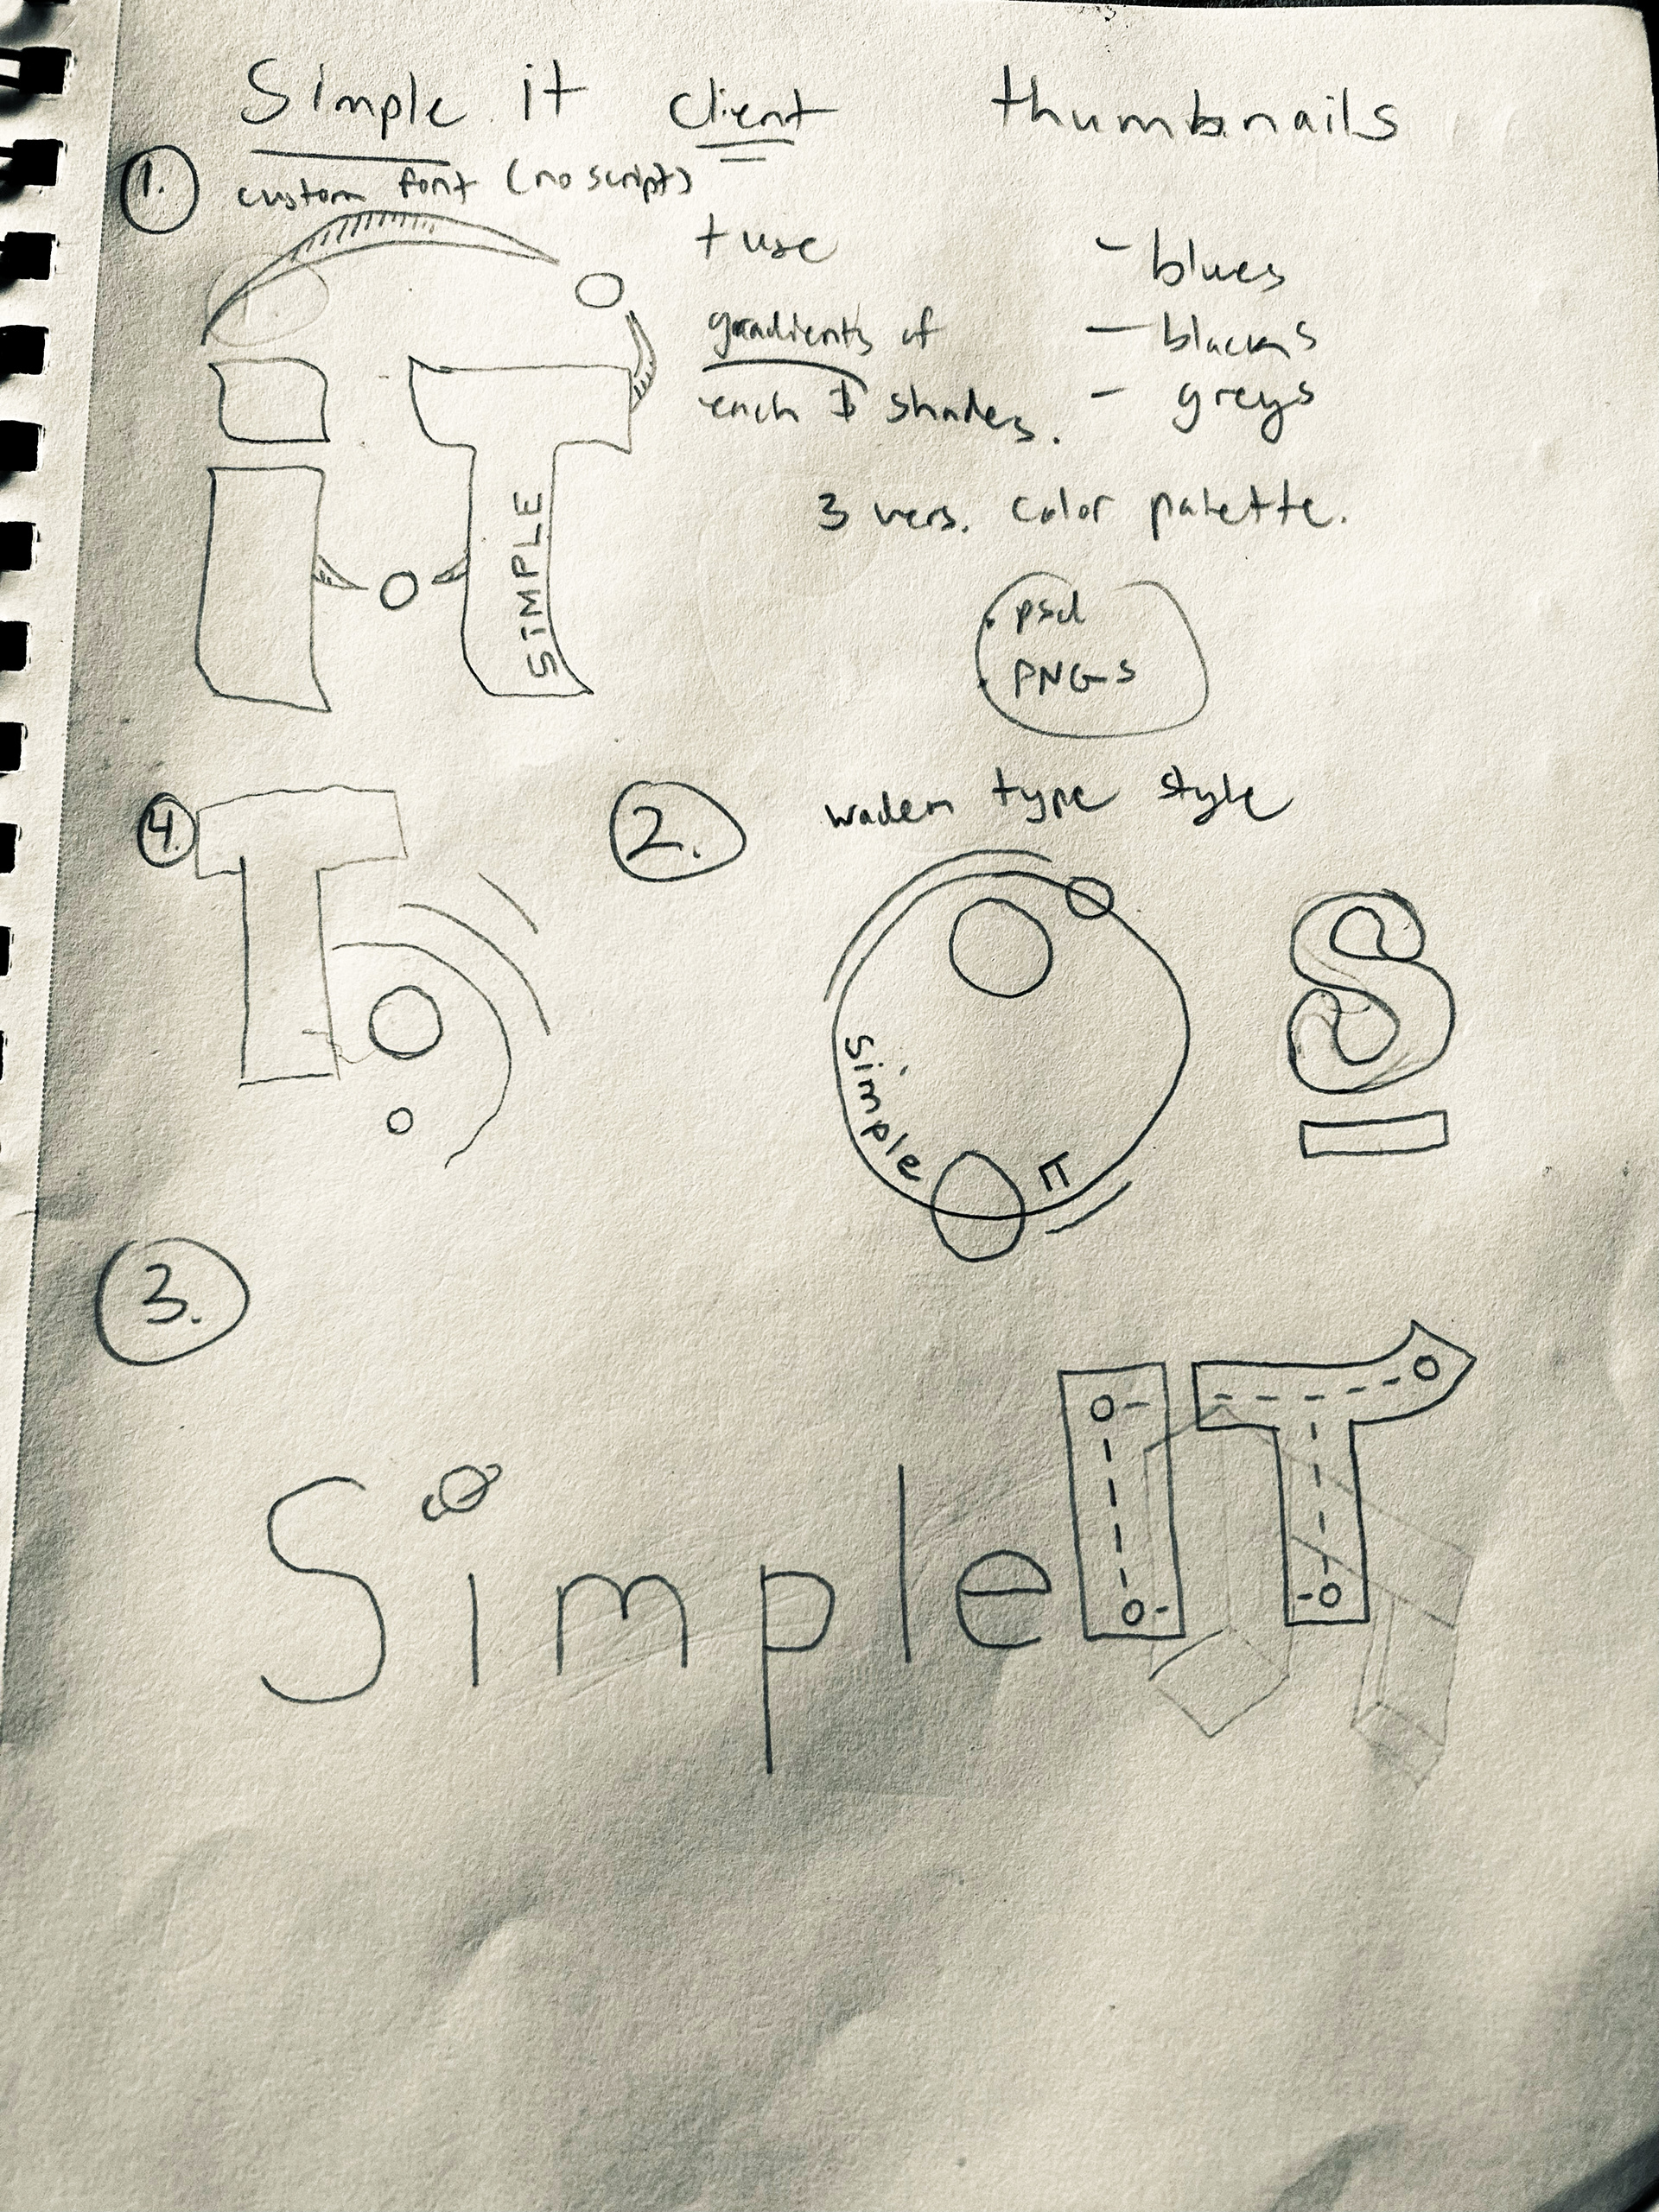 Simple it client thumbnails
1. custom font (no script)
+ use
gradients of
each & shades.
- blues
- blacks
- greys
3 vers. color palette.
iT
SiMPLE
. psd
. PNGs
4.
T
2.
type style
simple
IT
S
3.
Simple IT